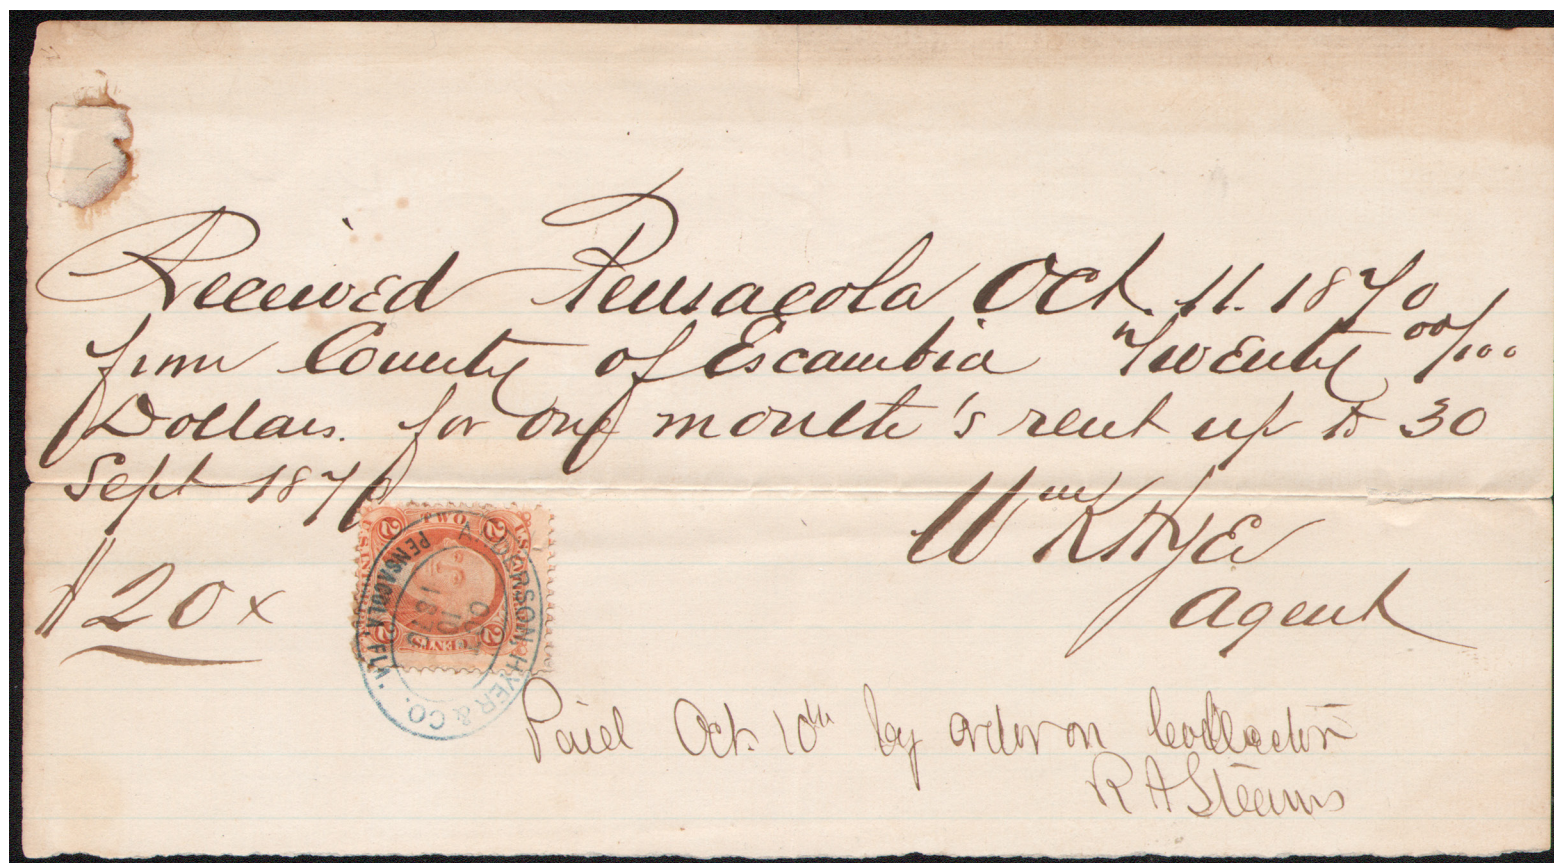 Received Pensacola Oct. 11. 1870
from County of Escambia Twenty 00/100
Dollars. for one month's rent up to 30
Sept 1870
Wm K Hyer
Agent
$20 x
TWO
2 2
U.S. INTER. REV.
2 2
CENTS
ANDERSON, HYER & CO.
PENSACOLA, FLA.
OCT
10
187
Paid Oct. 10th by order on Collector
R A Stearns